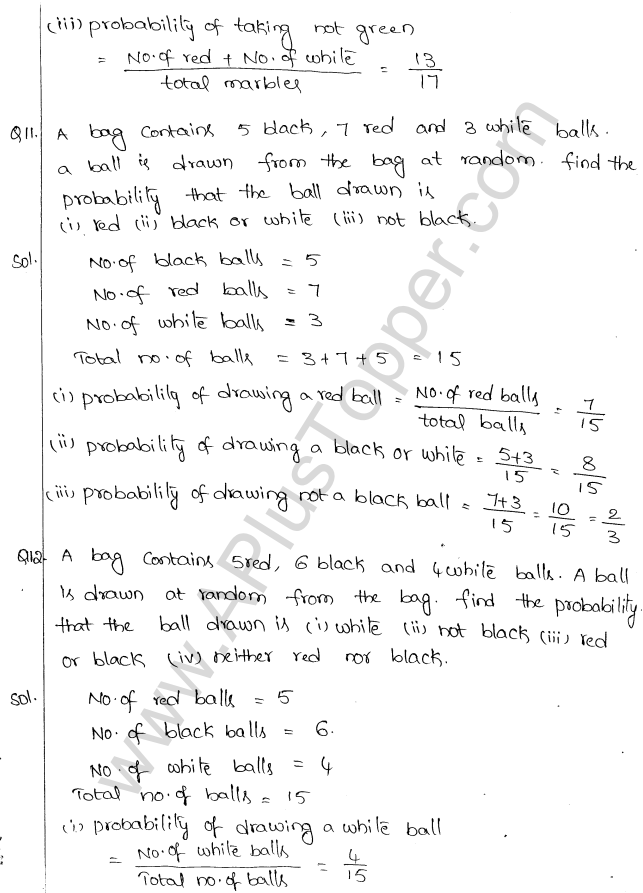 (iii) probability of taking not green
= No. of red + No. of white / total marbles = 13/17
Q11. A bag contains 5 black, 7 red and 3 white balls.
a ball is drawn from the bag at random. find the
probability that the ball drawn is
(i) red (ii) black or white (iii) not black.
Sol. No. of black balls = 5
No. of red balls = 7
No. of white balls = 3
Total no. of balls = 3+7+5 = 15
(i) probability of drawing a red ball = No. of red balls / total balls = 7/15
(ii) probability of drawing a black or white = 5+3/15 = 8/15
(iii) probability of drawing not a black ball = 7+3/15 = 10/15 = 2/3
Q12. A bag contains 5 red, 6 black and 4 white balls. A ball
is drawn at random from the bag. find the probability
that the ball drawn is (i) white (ii) not black (iii) red
or black (iv) neither red nor black.
Sol. No. of red balls = 5
No. of black balls = 6.
No of white balls = 4
Total no. of balls = 15
(i) probability of drawing a white ball
= No. of white balls / Total no. of balls = 4/15
www.APlusTopper.com